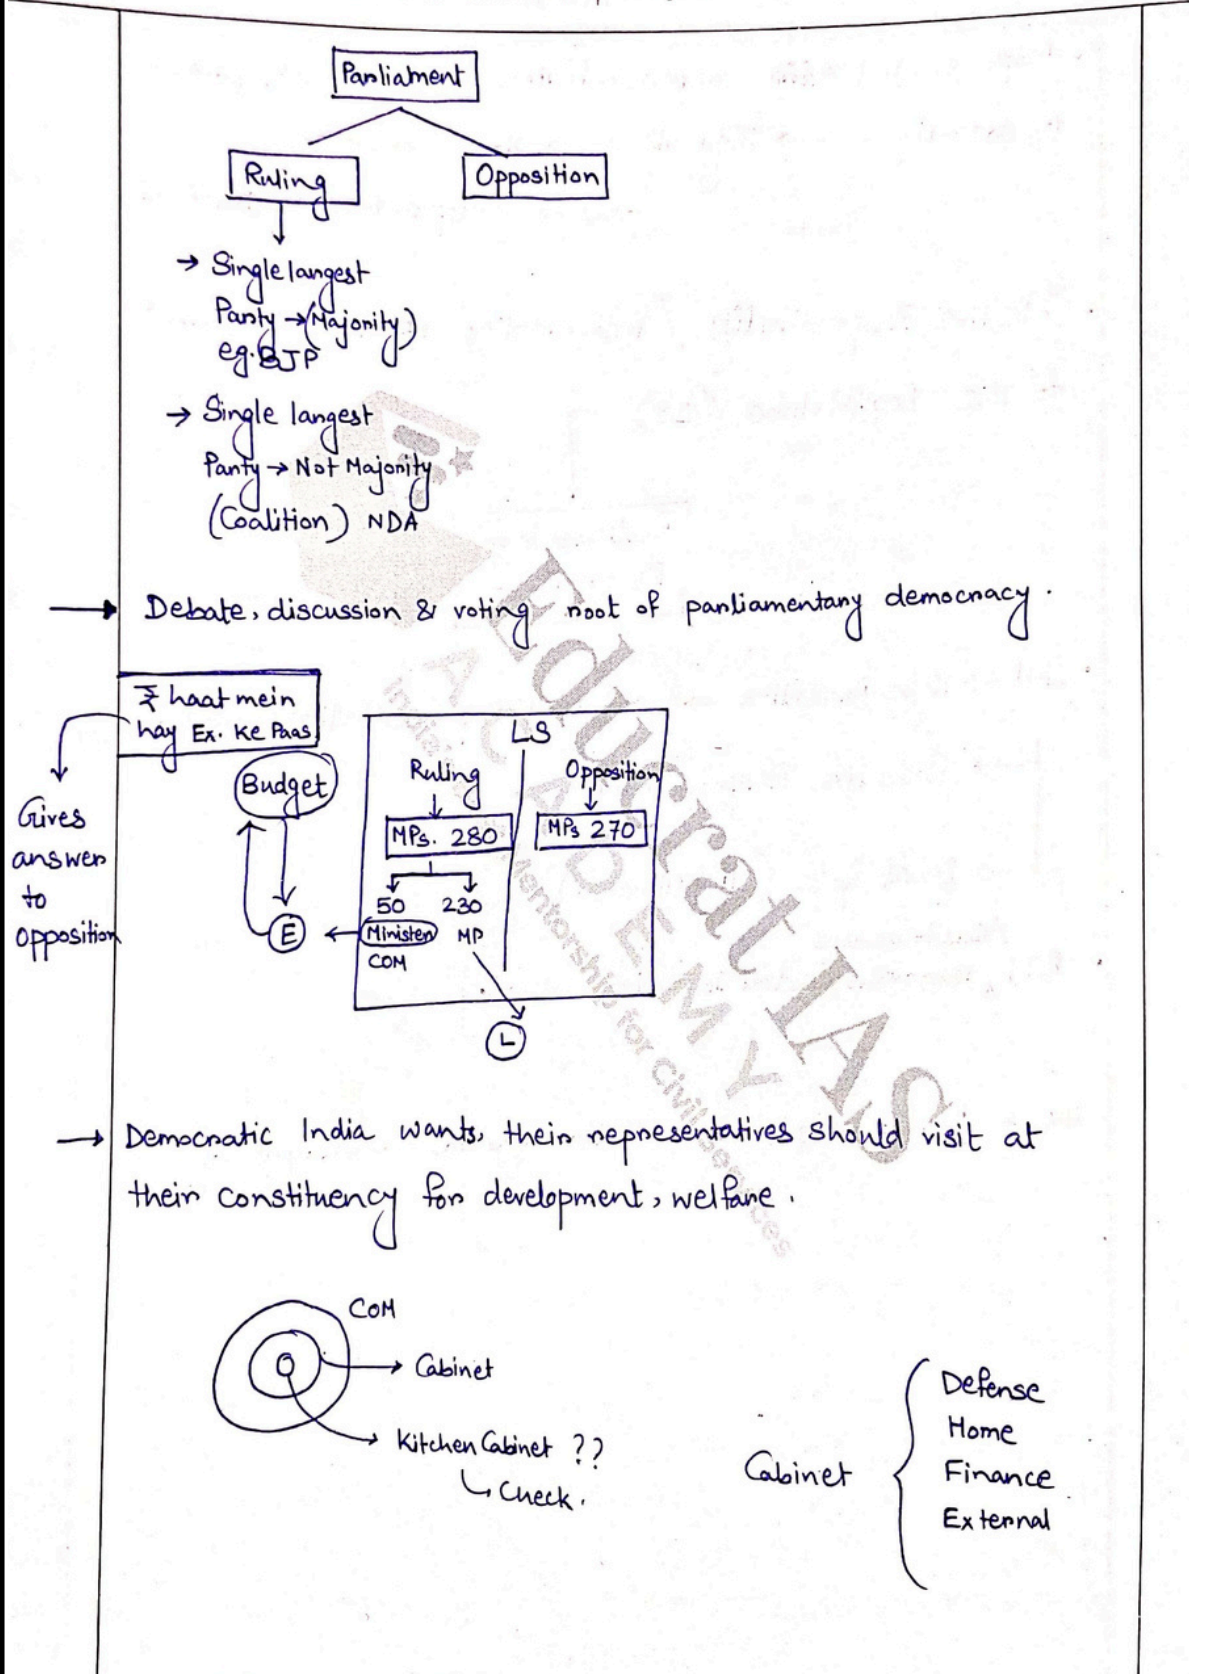 Parliament
Ruling
Opposition
→ Single largest
Party → (Majority)
eg. BJP
→ Single largest
Party → Not Majority
(Coalition) NDA
→ Debate, discussion & voting root of parliamentary democracy.
₹ haat mein
hay Ex. Ke Paas
Gives
answer
to
opposition
Budget
E
LS
Ruling
Opposition
MPs. 280
MPs 270
50 230
Minister MP
COM
L
→ Democratic India wants, their representatives should visit at
their constituency for development, welfare.
COM
→ Cabinet
→ Kitchen Cabinet ??
↳ Check.
Cabinet
Defense
Home
Finance
External
Educrat IAS
ACADEMY